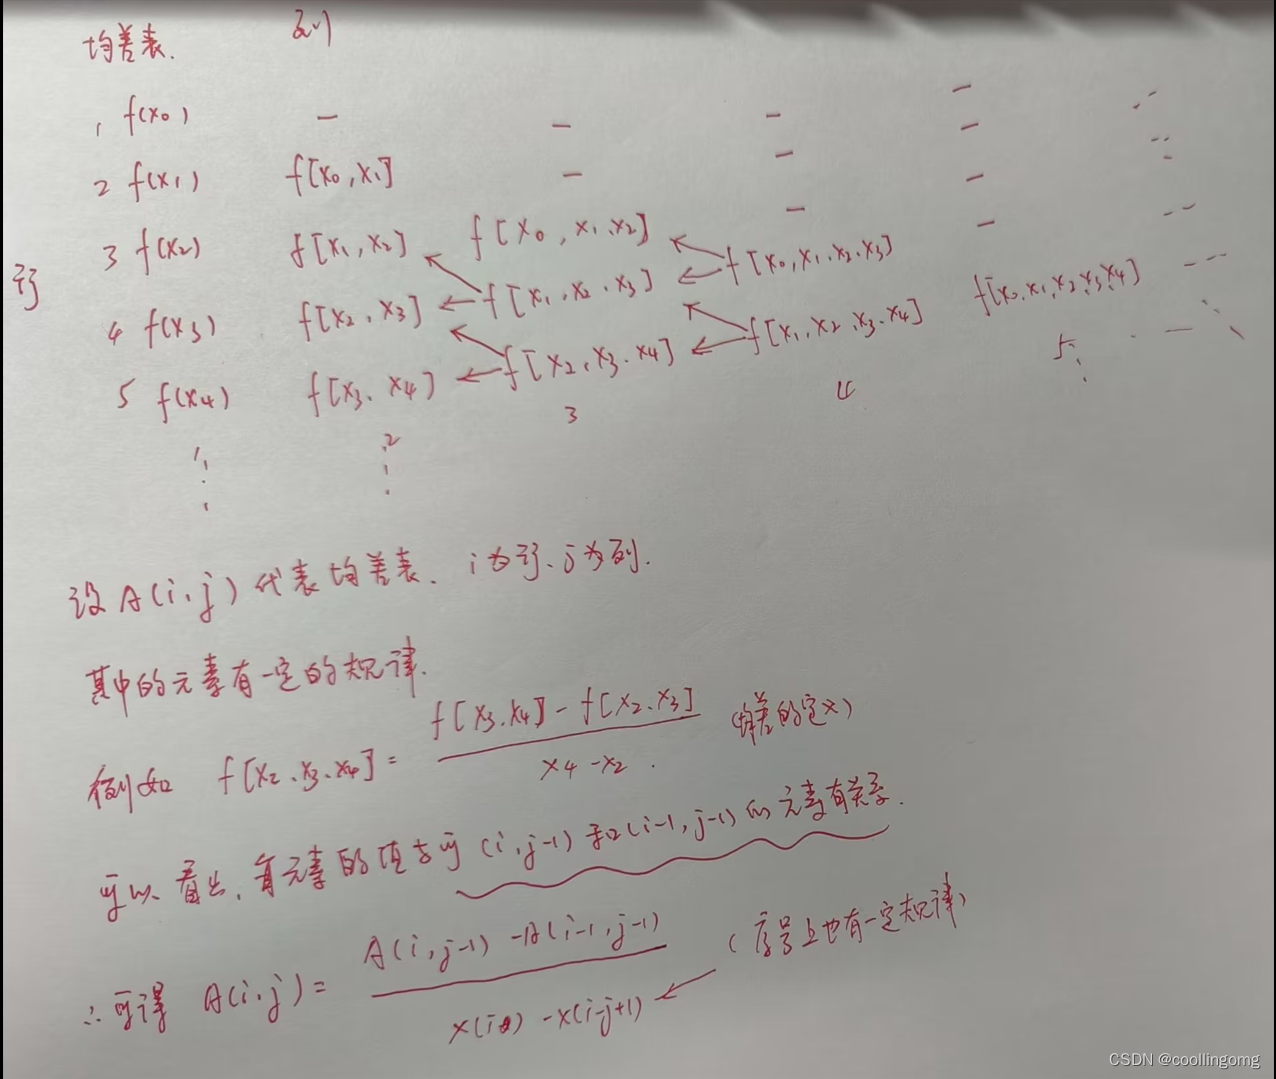 均差表. 列
1 f(x₀) — — — — --
2 f(x₁) f[x₀,x₁] — — — --
3 f(x₂) f[x₁,x₂] f[x₀,x₁.x₂] — — --
行
4 f(x₃) f[x₂,x₃] f[x₁,x₂.x₃] f[x₀,x₁.x₂.x₃] — ---
5 f(x₄) f[x₃、x₄] f[x₂,x₃.x₄] f[x₁,x₂.x₃.x₄] f[x₀.x₁,x₂,x₃,x₄]
1 2 3 4 5
设A(i,j)代表均差表、i为行、j为列.
其中的元素有一定的规律.
例如 f[x₂、x₃、x₄] = (f[x₃.x₄] - f[x₂.x₃]) / (x₄-x₂) . (均差的定义)
可以看出,每元素的值与 (i,j-1)和(i-1,j-1)的元素有关系.
∴可得 A(i,j) = (A(i,j-1) - A(i-1,j-1)) / (x(i) - x(i-j+1)) ← (序号上也有一定规律)
CSDN @coollingomg